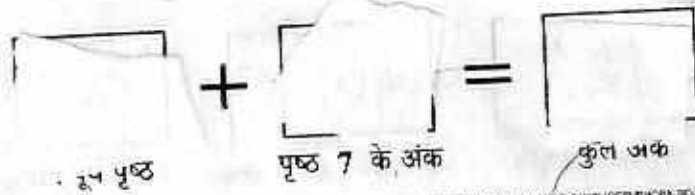 + =
पृष्ठ पृष्ठ 7 के अंक कुल अंक